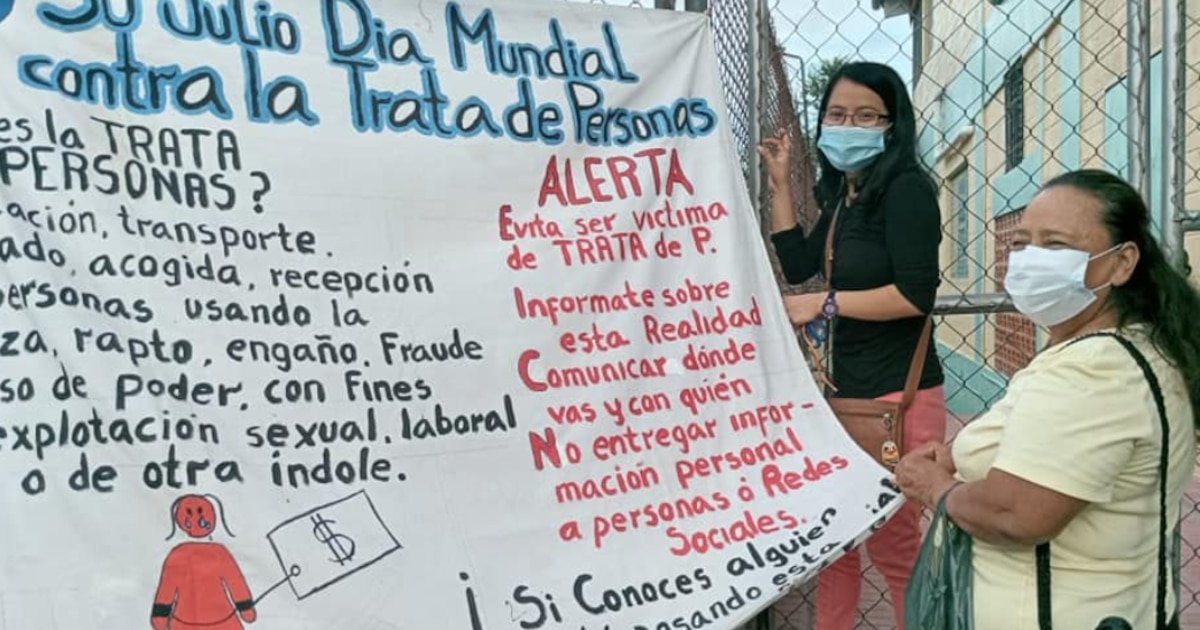 30 Julio Dia Mundial
contra la Trata de Personas
es la TRATA
PERSONAS?
ación, transporte.
ado, acogida, recepción
personas usando la
za, rapto, engaño. Fraude
so de Poder, con fines
explotación sexual, laboral
o de otra índole.
$
ALERTA
Evita ser victima
de TRATA de P.
Informate sobre
esta Realidad
Comunicar dónde
vas y con quién
No entregar infor-
mación personal
a personas ó Redes
Sociales.
¡ Si Conoces alguien
pasando esta